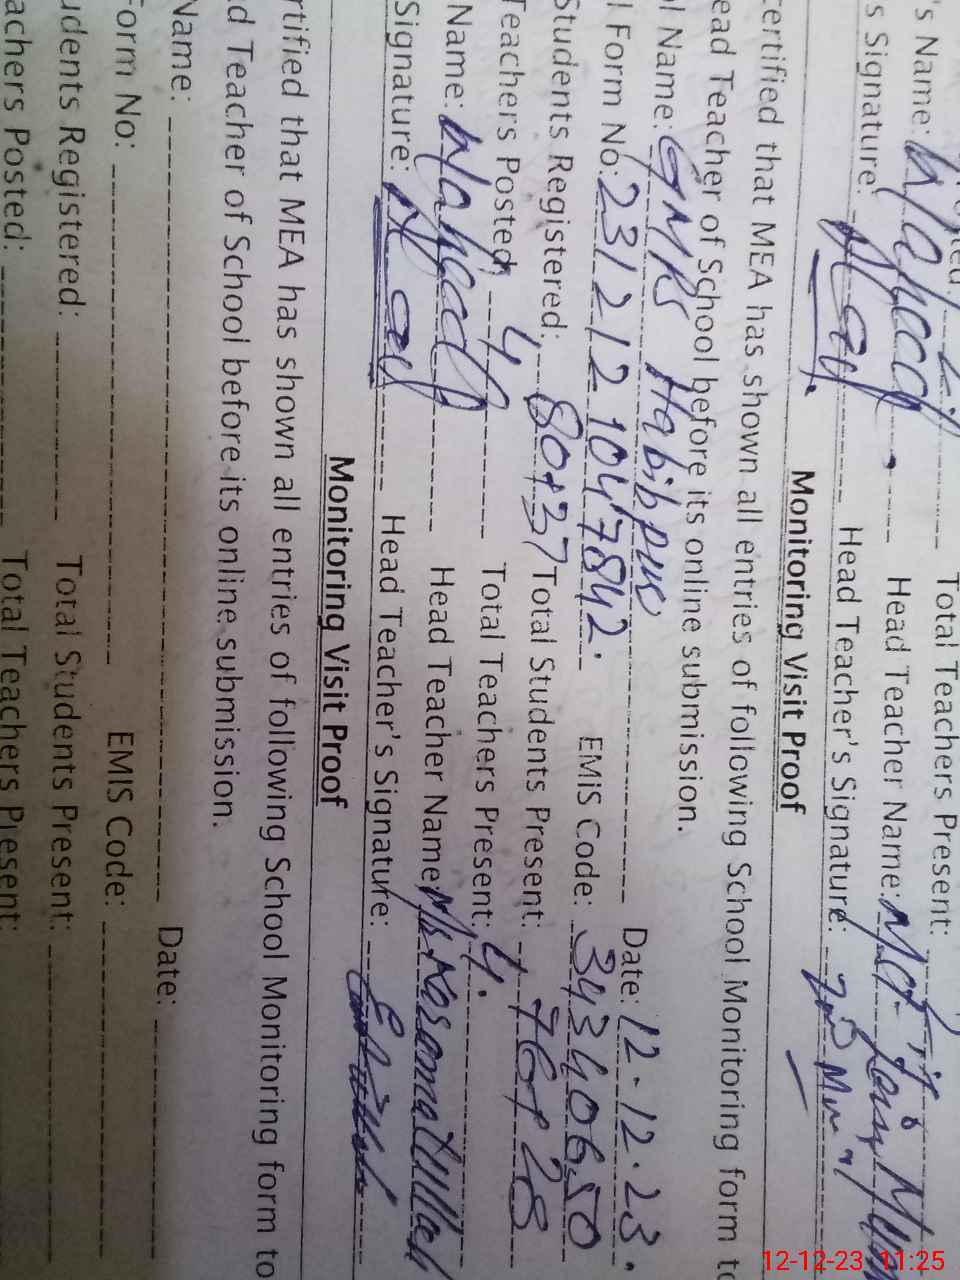 Total Teachers Present:
's Name: Waheed. Head Teacher Name:
s Signature: Head Teacher's Signature:
Monitoring Visit Proof
certified that MEA has shown all entries of following School Monitoring form to
ead Teacher of School before its online submission.
l Name: GMPS Habib pur Date: 12.12.23.
l Form No: 2312121047842. EMIS Code: 34340650
Students Registered: 80+37 Total Students Present: 76+28
Teachers Posted: 4 Total Teachers Present: 4.
Name: Waheed Head Teacher Name:
Signature: Head Teacher's Signature:
Monitoring Visit Proof
rtified that MEA has shown all entries of following School Monitoring form to
d Teacher of School before its online submission.
Name: Date:
Form No: EMIS Code:
udents Registered: Total Students Present:
achers Posted: Total Teachers Present:
12-12-23 11:25